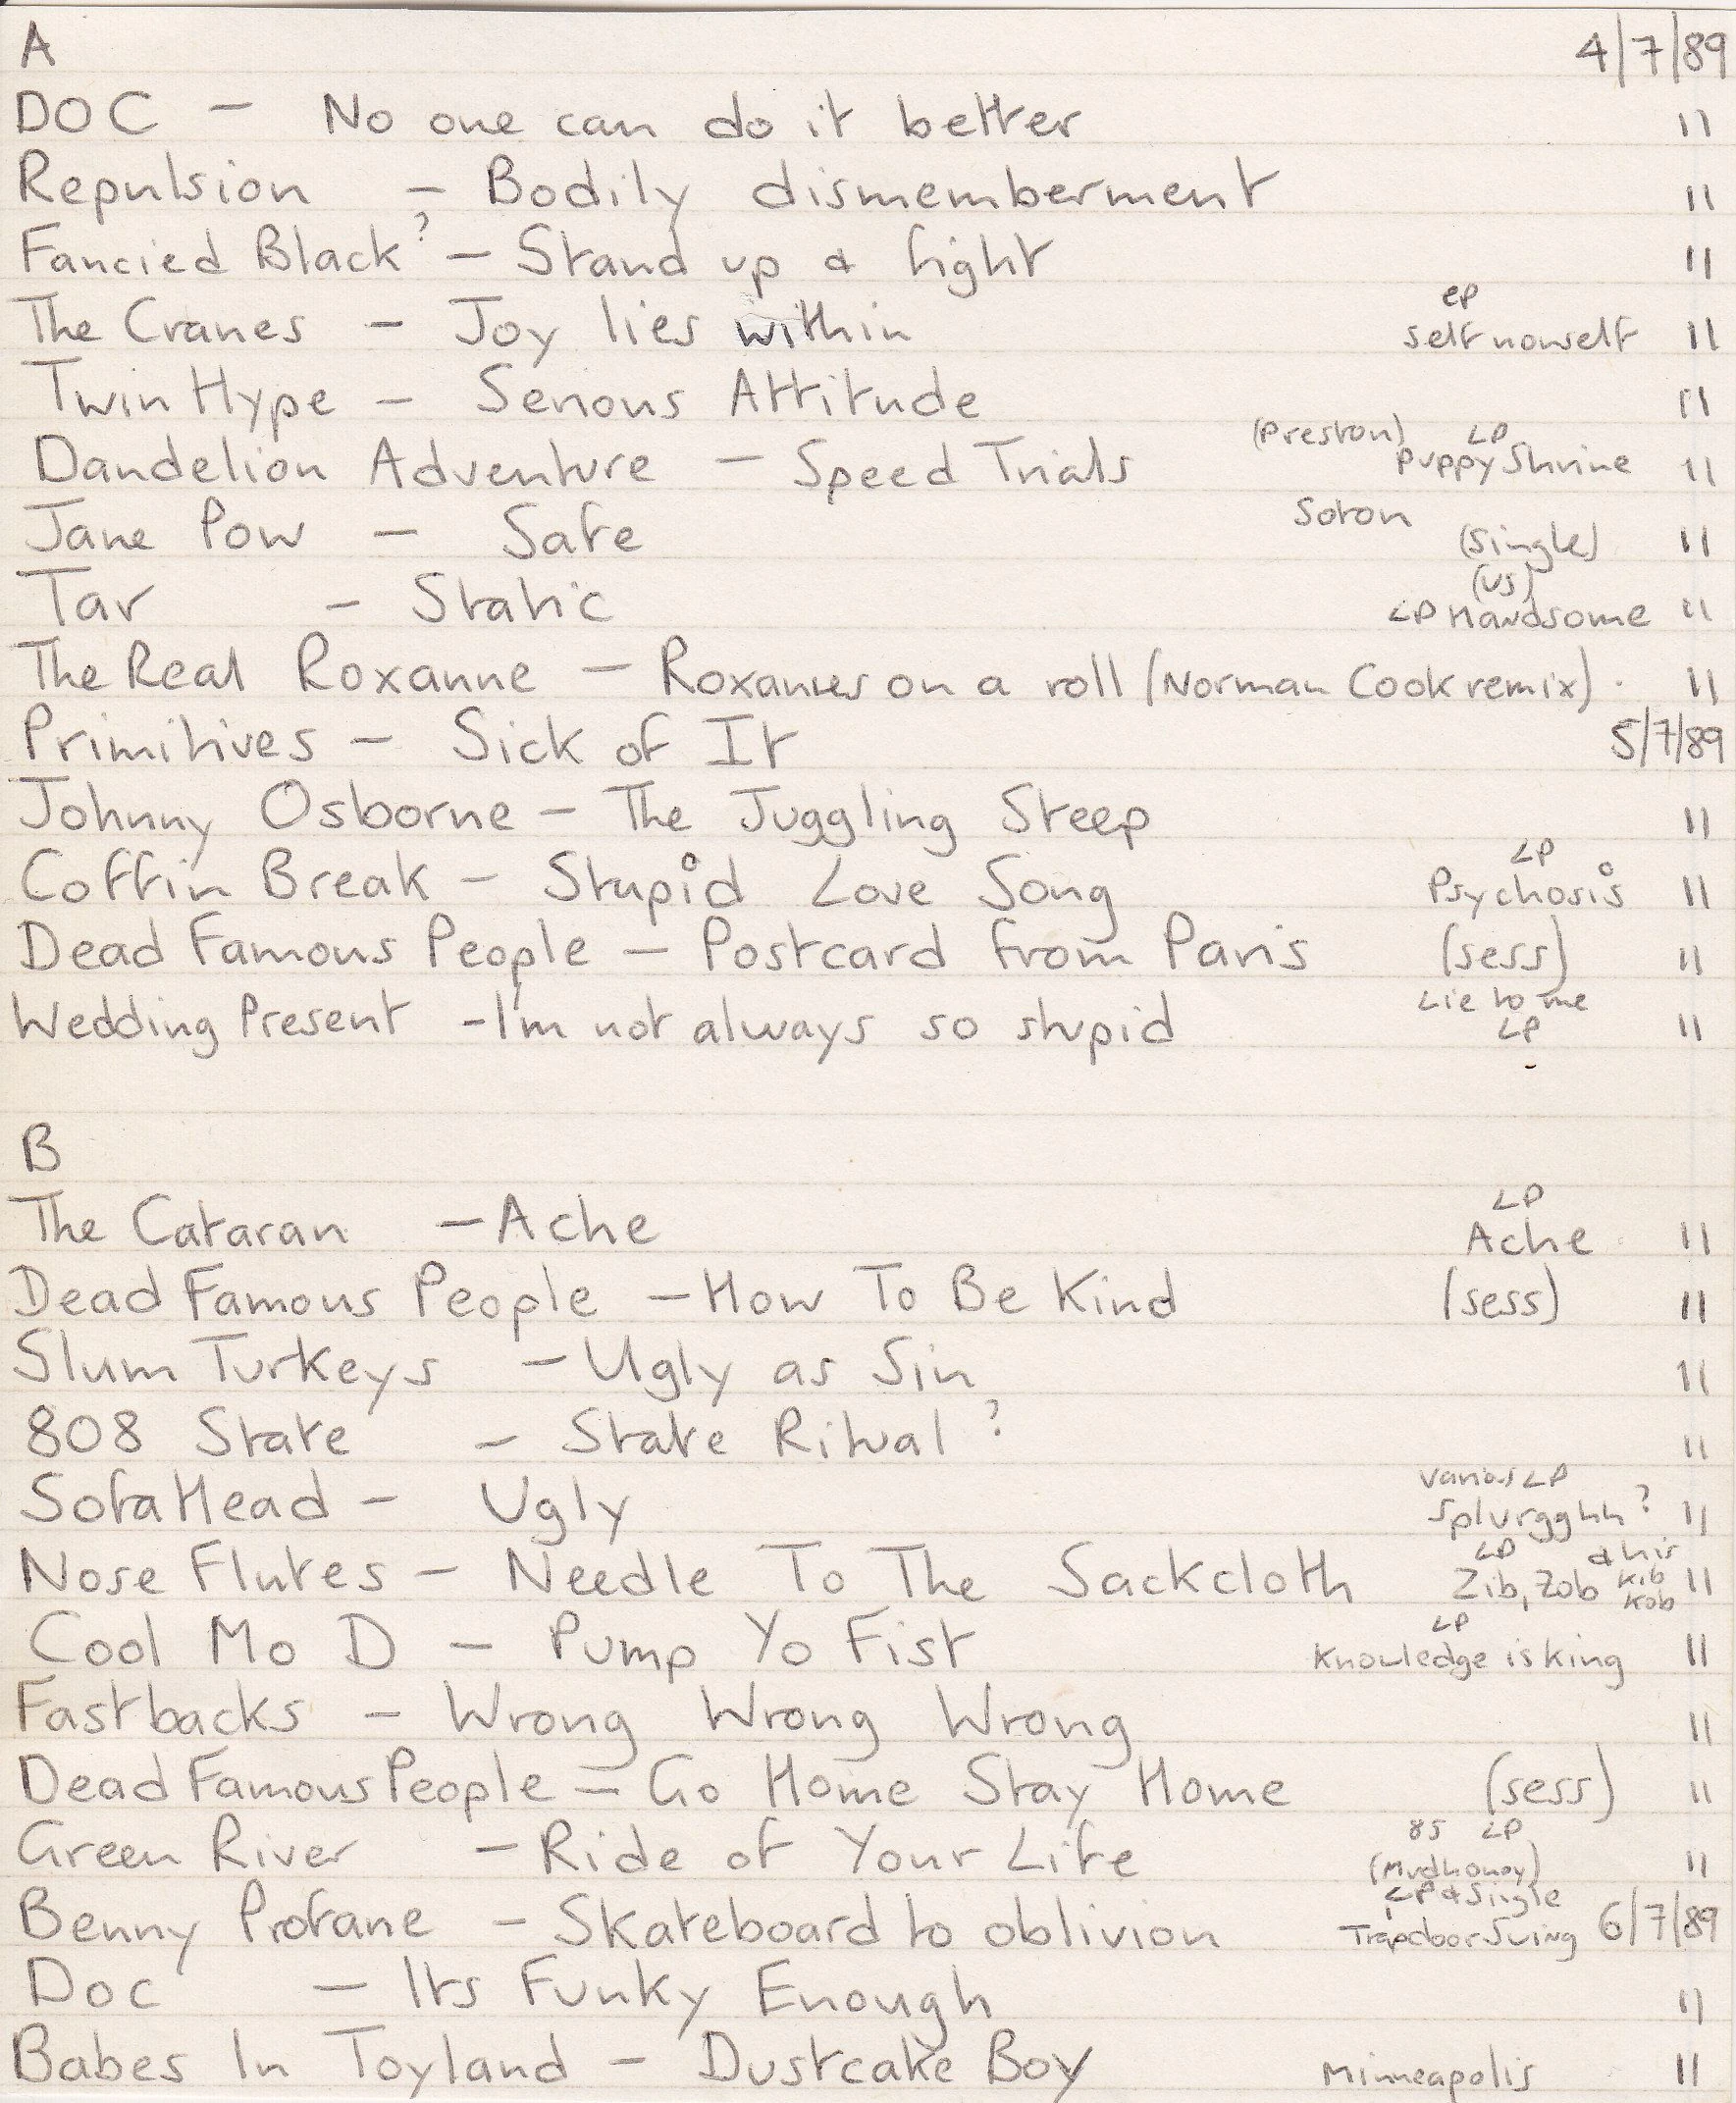 A 4/7/89
DOC - No one can do it better "
Repulsion - Bodily dismemberment "
Fancied Black? - Stand up & fight "
ep
The Cranes - Joy lies within self nonself "
Twin Hype - Serious Attitude "
(Preston) LP
Dandelion Adventure - Speed Trials Puppy Shrine "
Soton
Jane Pow - Safe (single) "
(US)
Tar - Static LP Handsome "
The Real Roxanne - Roxannes on a roll (Norman Cook remix). "
Primitives - Sick of It 5/7/89
Johnny Osborne - The Juggling Steep "
LP
Coffin Break - Stupid Love Song Psychosis "
Dead Famous People - Postcard from Paris (sess) "
Lie to me
Wedding Present - I'm not always so stupid LP "
B
LP
The Cataran - Ache Ache "
Dead Famous People - How To Be Kind (sess) "
Slum Turkeys - Ugly as Sin "
808 State - State Ritual? "
Various LP
Sofa Head - Ugly Splurgghh? "
LP & his
Nose Flutes - Needle To The Sackcloth Zib, Zob Kib "
Kob
LP
Cool Mo D - Pump Yo Fist Knowledge is king "
Fastbacks - Wrong Wrong Wrong "
Dead Famous People - Go Home Stay Home (sess) "
85 LP
Green River - Ride of Your Life (Mudhoney) "
LP & Single
Benny Profane - Skateboard to oblivion Trapdoor Swing 6/7/89
Doc - Its Funky Enough "
Babes In Toyland - Dustcake Boy Minneapolis "